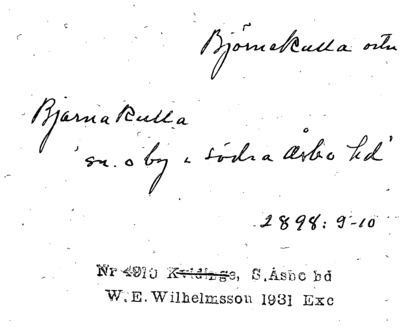 Björnekulla ortn
Bjärnakulla
'sn. o by i södra Åsbo hd'
2898: 9-10
Nr 4910 Kvidinge, S. Åsbo hd
W. E. Wilhelmsson 1931 Exc